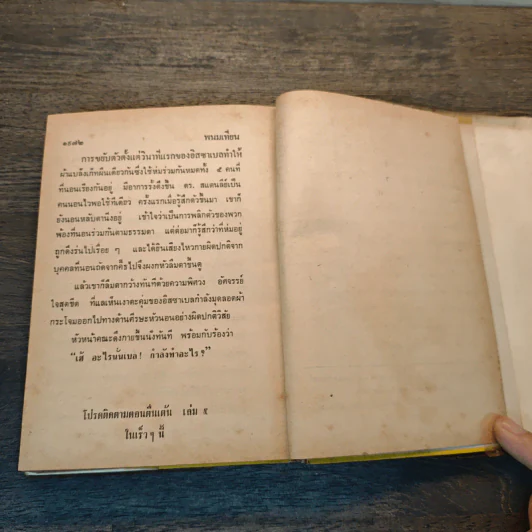 ๑๔๗๒ พนมเทียน
การขยับตัวตั้งแต่วินาทีแรกของอิสซาเบลทำให้
ผ้าแบลังเก็ทผืนเดียวกันซึ่งใช้ห่มร่วมกันหมดทั้ง ๕ คนที่
ที่นอนเรียงกันอยู่ มีอาการรั้งดึงขึ้น ดร. สแตนลีย์เป็น
คนนอนไวพอใช้ทีเดียว ครั้งแรกเมื่อรู้สึกตัวขึ้นมา เขาก็
ยังนอนหลับตานิ่งอยู่ เข้าใจว่าเป็นการพลิกตัวของพวก
พ้องที่นอนร่วมกันตามธรรมดา แต่ต่อมาก็รู้สึกว่าที่ห่มอยู่
ถูกดึงร่นไปเรื่อย ๆ และได้ยินเสียงไหวกายผิดปกติจาก
บุคคลที่นอนถัดจากคีธไปจึงผงกหัวลืมตาขึ้นดู
แล้วเขาก็ลืมตากว้างทันทีด้วยความพิศวง อัศจรรย์
ใจสุดขีด ที่แลเห็นเงาตะคุ่มของอิสซาเบลกำลังมุดลอดผ้า
กระโจมออกไปทางด้านศีรษะหัวนอนอย่างผิดปกติวิสัย
หัวหน้าคณะดึงกายขึ้นนั่งทันที พร้อมกับร้องว่า
"เฮ้ อะไรนั่นเบล! กำลังทำอะไร?"
โปรดติดตามตอนตื่นเต้น เล่ม ๕
ในเร็ว ๆ นี้